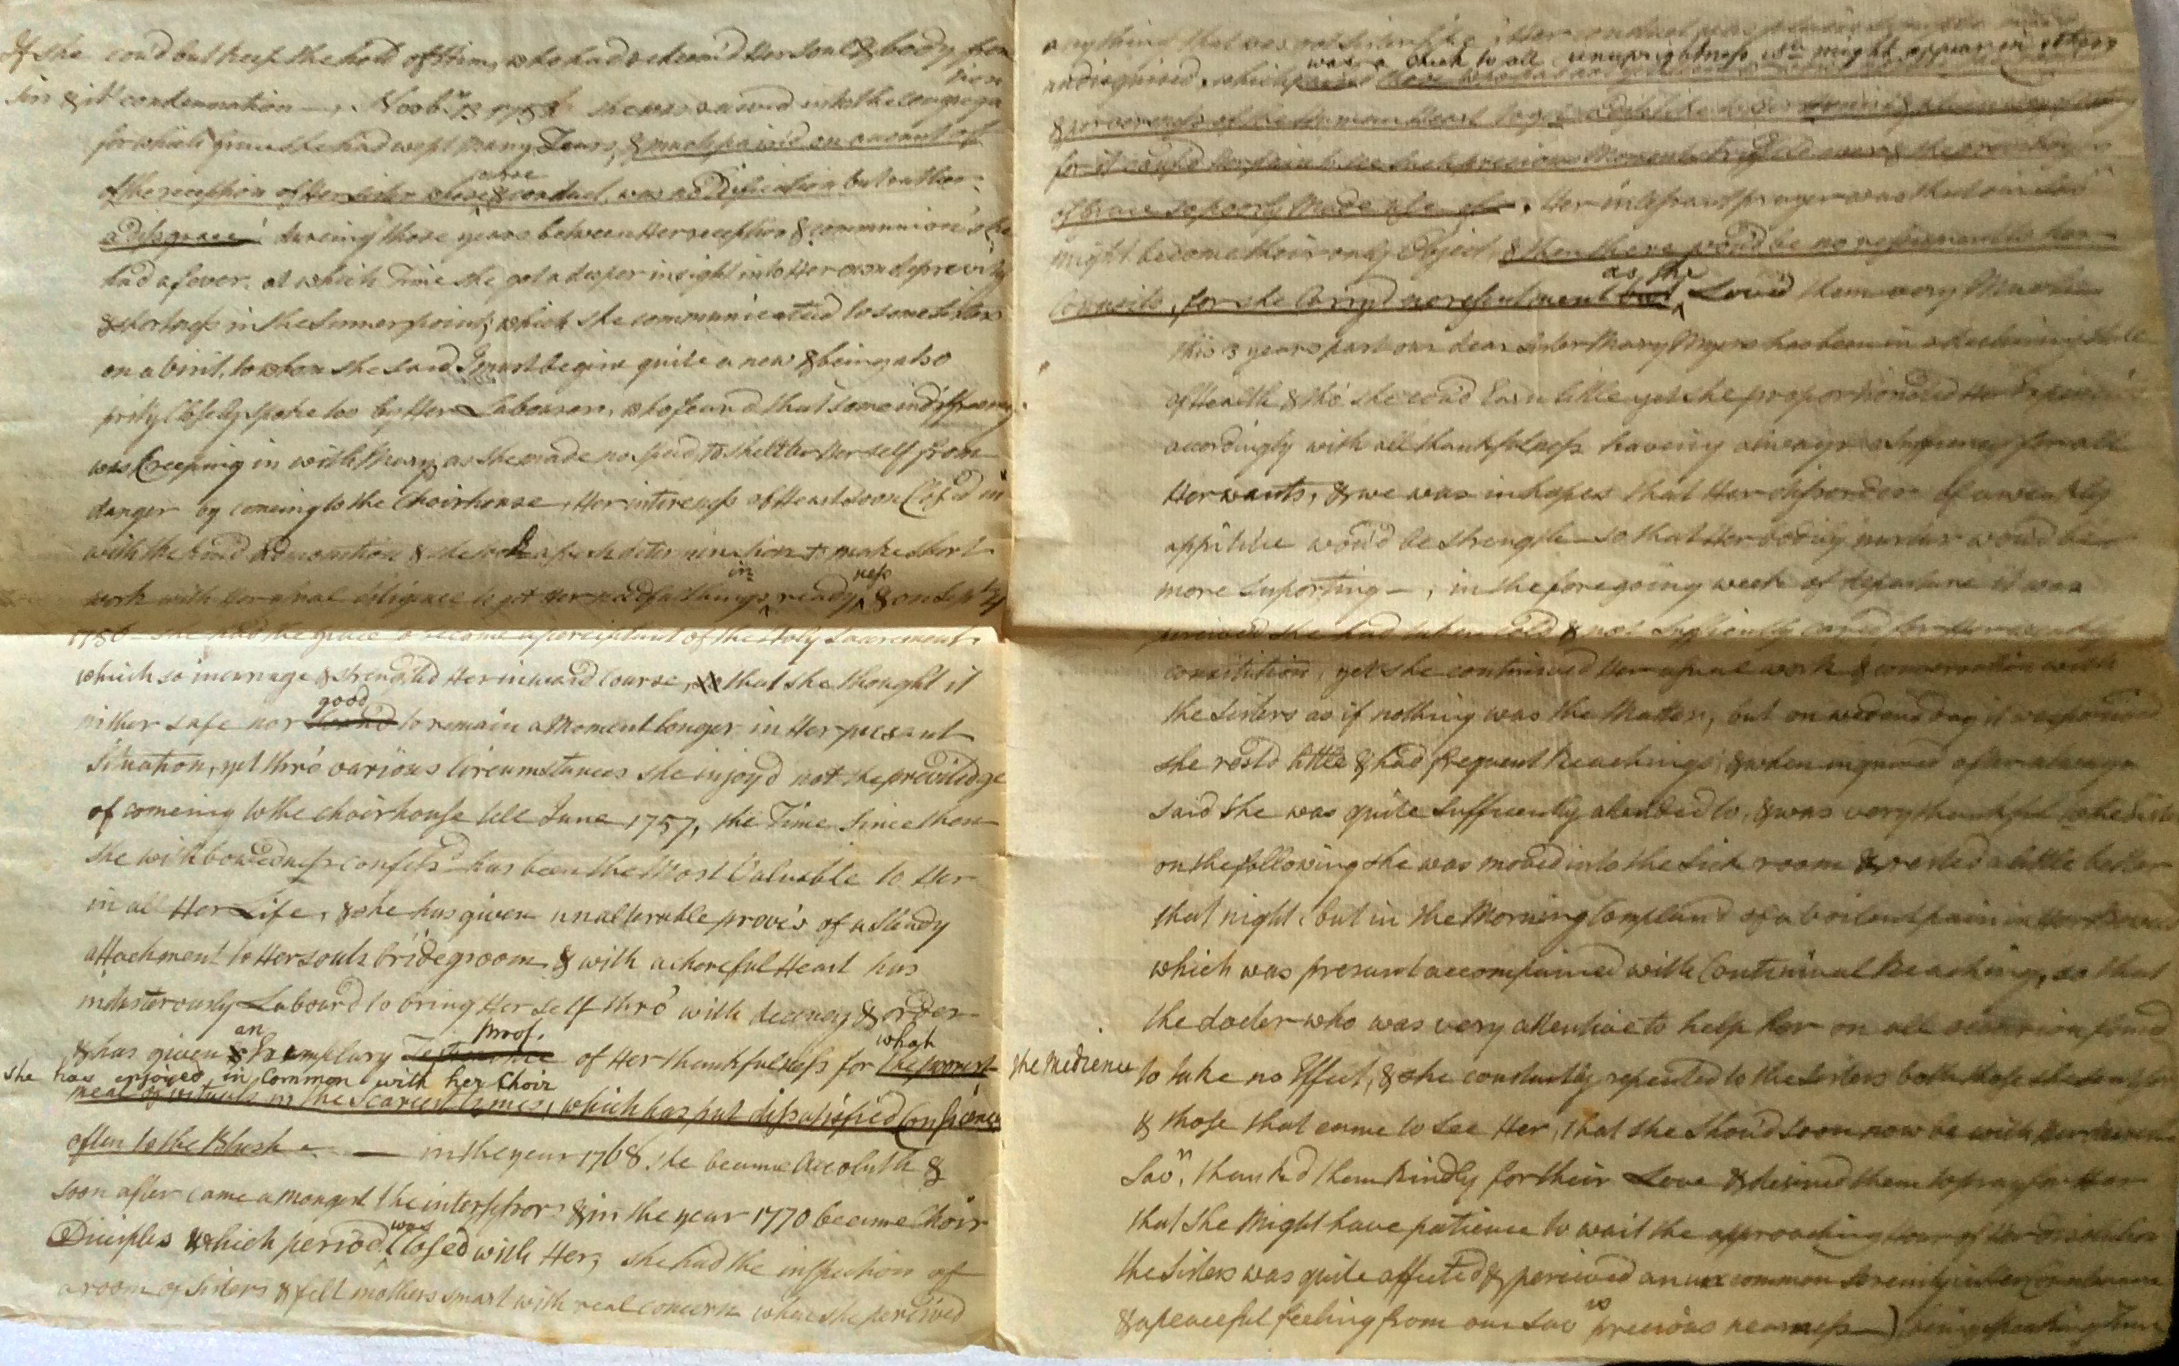 If she cou'd but keep the hold of Him, who had redeem'd Her Soul & body from
Sin & it' condemnation —, Novbr 13 1752 she was received into the congregation
for which Grace she had wept many Tears, & much pain'd on account of
of the reception of Her sister whose & conduct, was no Edification but rather
a disgrace! dureing those years between Her reception & communion she
had a fever, at which Time she got a deeper insight into Her own depravity
& shortness in the Inner point, which she communicated to some Sisters
on a visit, to whom she said I must begin quite a new & being also
prity Closely spoke too by Her Labouress, who fear'd that some indifferency
was Creeping in with Mary, as she made no speed, to shelter Her self from
danger by comeing to the Choirhouse, Her interness of Heart soon Closed in
with the kind admonition & she took a fresh determination to make short
work with Her usual diligence to get Her needfull things in readyness & on Sept
1756 she had the grace to become a perciptant of the Holy Sacrement,
which so incurrage & strengthd Her inward course, so that she thought it
nither safe nor good to remain a Moment longer in Her presant
Situation, yet thro' various Circumstances she injoy'd not the previlidge
of comeing to the choirhouse till June 1757, the Time Since then
she with bowedness confess'd has been the Most Valuable to Her
in all Her Life, & she has given unalturable proves of a Steady
attachment to Her souls bridegroom & with a chereful Heart has
industerously Labour'd to bring Her self thro' with decency & order
& has given an Exemplary Proof. of Her thankfulness for what the poorest
she has enjoyed in Common with her Choir
meal of vituals in the Scarcest times, which has put dissatisfied Consciences
often to the Blush — in the year 1768. she became Accoluth &
soon after came amongst the interssors & in the year 1770 became Choir
Diciples & which period was Closed with Her; she had the inspection of
a room of Sisters & felt mothers smart with real concern when she perceived
any thing that was not Sister like, Her conduct was
was a Check to all unuprightness wch might appear in others
and disguised, which
& of the Human Heart
for it caused Her pain to see such precious Moments trifled away & the
of Grace so poorly Made use of. Her incessant prayer was that our Savr
might become their only Object, & then there wou'd be no
for she Carry'd no resentment as she Loved them very
This 3 years past our dear Sister Mary Myers has been in a declineing State
of Health & tho' she cou'd Earn little yet she proportionated Her Expences
accordingly with all thankfulness haveing always a Suffiency for all
Her wants, & we was in hopes that Her dissorders of a weakly
appitite wou'd be strength so that Her bodily nurture wou'd be
more suporting —, in the foregoing week of departure it was
perceived she had taken Cold & not Suffiently cared for Her weakly
constitution, yet she continued Her usual work & conversation with
the Sisters as if nothing was the Matter, but on wedensday it
she rested little & had frequent Reachings & when inquired after always
said she was quite Suffiently attended to, & was very thankful to the Sist
on the following she was moved into the Sick room & rested a little better
that night, but in the Morning Complain'd of a voilent pain in Her
which was presant accompained with Continual Reaching, so that
the docter who was very attentive to help her on all occasion found
the Medicence to take no Effect, & she constantly repeated to the Sisters both those she sent for
& those that came to see Her, that she Shou'd soon now be with
Savr. thank'd them kindly for their Love & desired them to pray for Her
that she Might have patience to wait the approaching hour of Her dissolution
the Sisters was quite affected & perceived an uncommon serenity in Her
& a peaceful feeling from our Savrs precious nearness